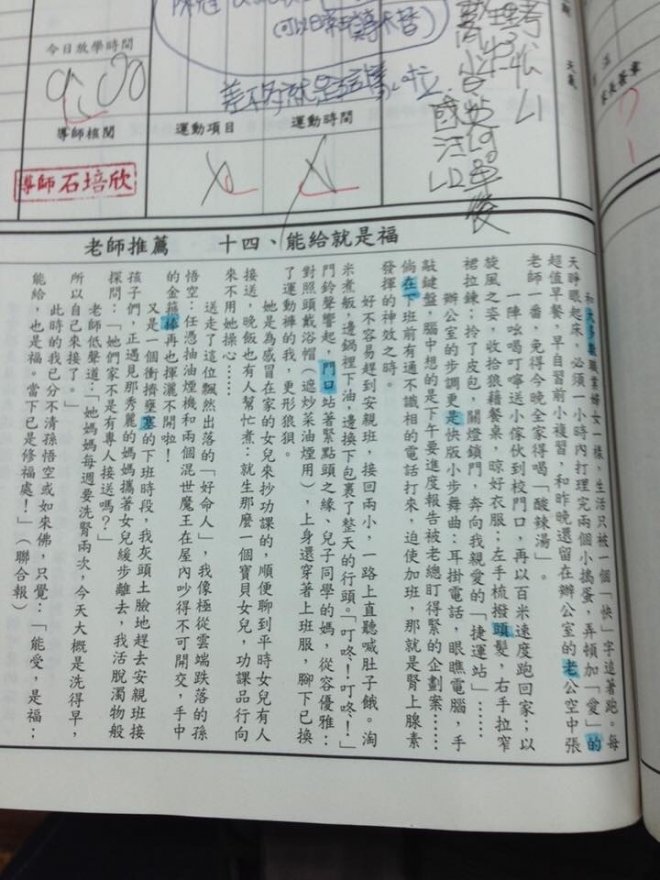 今日放學時間
9:00
導師核閱
導師石培欣
運動項目
運動時間
差不多就是這樣啦
老師推薦 十四、能給就是福
和大多數職業婦女一樣,生活只被一個「快」字追著跑。每
天睜眼起床,必須一小時內打理完兩個小搗蛋,弄頓加「愛」的
超值早餐,早自習前小複習,和昨晚還留在辦公室的老公空中張
老師一番,免得今晚全家得喝「酸辣湯」。
一陣吆喝叮嚀送小傢伙到校門口,再以百米速度跑回家;以
旋風之姿,收拾狼藉餐桌,晾好衣服;左手梳撥頭髮,右手拉窄
裙拉鍊;拎了皮包,關燈鎖門,奔向我親愛的「捷運站」……
辦公室的步調更是快版小步舞曲:耳掛電話,眼瞧電腦,手
敲鍵盤,腦中想的是下午要進度報告被老總盯得緊的企劃案……
倘在下班前有通不識相的電話打來,迫使加班,那就是腎上腺素
發揮的神效之時。
好不容易趕到安親班,接回兩小,一路上直聽喊肚子餓。淘
米煮飯,邊鍋裡下油,邊換下包裹了整天的行頭。「叮咚!叮咚!」
門鈴聲響起,門口站著緊點頭之緣、兒子同學的媽,從容優雅:
對照頭戴浴帽(遮炒菜油煙用),上身還穿著上班服,腳下已換
了運動褲的我,更形狼狽。
她是為感冒在家的女兒來抄功課的,順便聊到平時女兒有人
接送,晚飯也有人幫忙煮:就生那麼一個寶貝女兒,功課品行向
來不用她操心……
送走了這位飄然出落的「好命人」,我像極從雲端跌落的孫
悟空:任憑抽油煙機和兩個混世魔王在屋內吵得不可開交,手中
的金箍棒再也揮灑不開啦!
又是一個衝擠壅塞的下班時段,我灰頭土臉地趕去安親班接
孩子們,正遇見那秀麗的媽媽攜著女兒緩步離去,我活脫濁物般
探問:「她們家不是有專人接送嗎?」
老師低聲道:「她媽媽每週要洗腎兩次,今天大概是洗得早,
所以自己來接了。」
此時的我已分不清孫悟空或如來佛,只覺:「能愛,是福:
能給,也是福。當下已是修福處!」(聯合報)